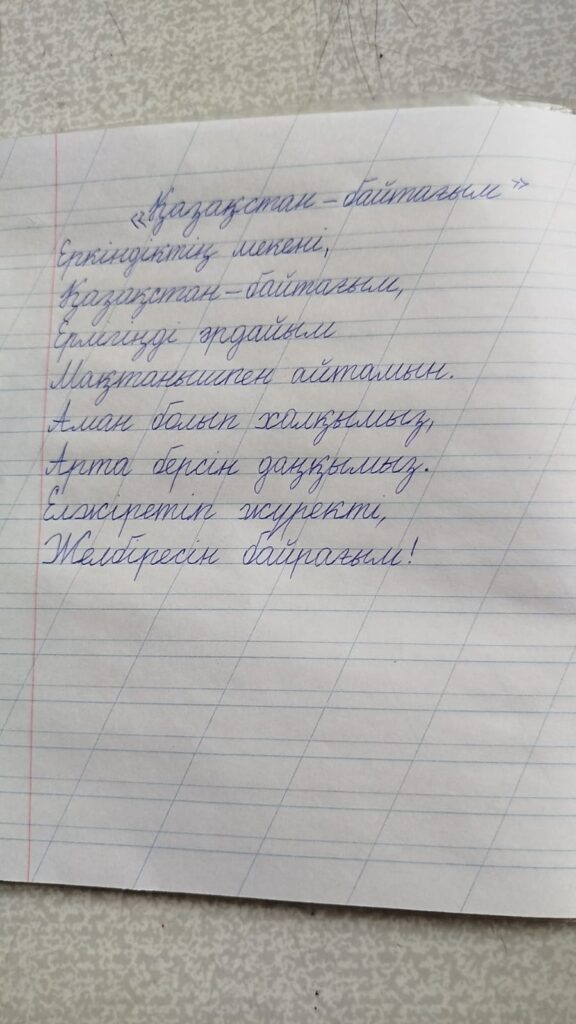 «Қазақстан – байтағым»
Еркіндіктің мекені,
Қазақстан – байтағым,
Ерлігіңді әрдайым
Мақтанышпен айтамын.
Аман болып халқымыз,
Арта берсін даңқымыз.
Елжіретіп жүректі,
Желбіресін байрағым!